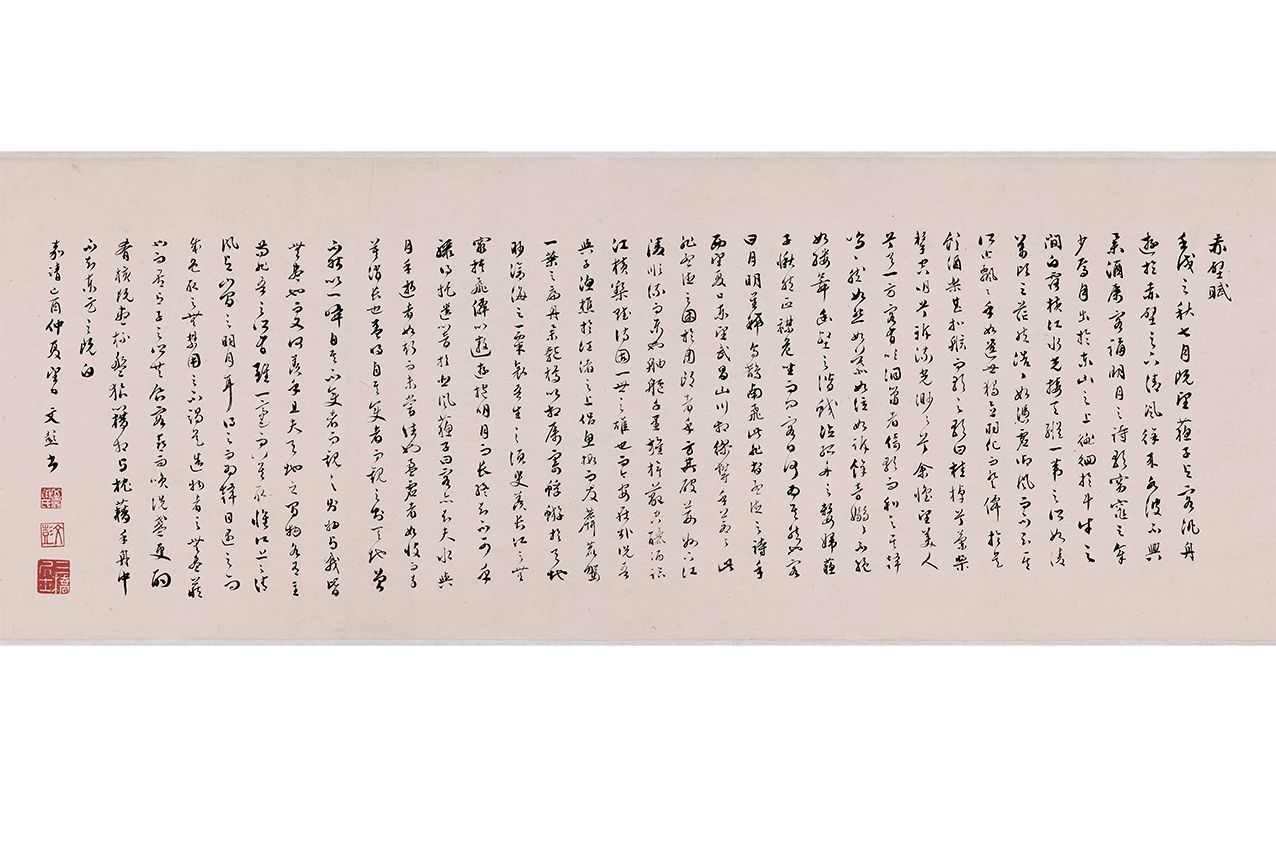 赤壁賦
壬戌之秋七月既望蘇子與客汎舟
遊於赤壁之下清風徐來水波不興
舉酒屬客誦明月之詩歌窈窕之章
少焉月出於東山之上徘徊於斗牛之
間白露橫江水光接天縱一葦之所如凌
萬頃之茫然浩浩乎如馮虛御風而不知其
所止飄飄乎如遺世獨立羽化而登僊於是
飲酒樂甚扣舷而歌之歌曰桂棹兮蘭槳
擊空明兮泝流光渺渺兮余懷望美人
兮天一方客有吹洞簫者倚歌而和之其聲
嗚嗚然如怨如慕如泣如訴餘音嫋嫋不絕
如縷舞幽壑之潛蛟泣孤舟之嫠婦蘇
子愀然正襟危坐而問客曰何為其然也客
曰月明星稀烏鵲南飛此非曹孟德之詩乎
西望夏口東望武昌山川相繆鬱乎蒼蒼此
非孟德之困於周郎者乎方其破荊州下江
陵順流而東也舳艫千里旌旗蔽空釃酒臨
江橫槊賦詩固一世之雄也而今安在哉況吾
與子漁樵於江渚之上侶魚蝦而友麋鹿駕
一葉之扁舟舉匏樽以相屬寄蜉蝣於天地
渺滄海之一粟哀吾生之須臾羨長江之無
窮挾飛僊以遨遊抱明月而長終知不可乎
驟得託遺響於悲風蘇子曰客亦知夫水與
月乎逝者如斯而未嘗往也盈虛者如彼而
卒莫消長也蓋將自其變者而觀之則天地曾
不能以一瞬自其不變者而觀之則物與我皆
無盡也而又何羨乎且夫天地之間物各有主
苟非吾之所有雖一毫而莫取惟江上之清
風與山間之明月耳得之而為聲目遇之而
成色取之無禁用之不竭是造物者之無盡藏
也而吾與子之所共食客喜而笑洗盞更酌
肴核既盡杯盤狼藉相與枕藉乎舟中
不知東方之既白
嘉靖乙酉仲夏望日文彭書
文彭
三橋居士